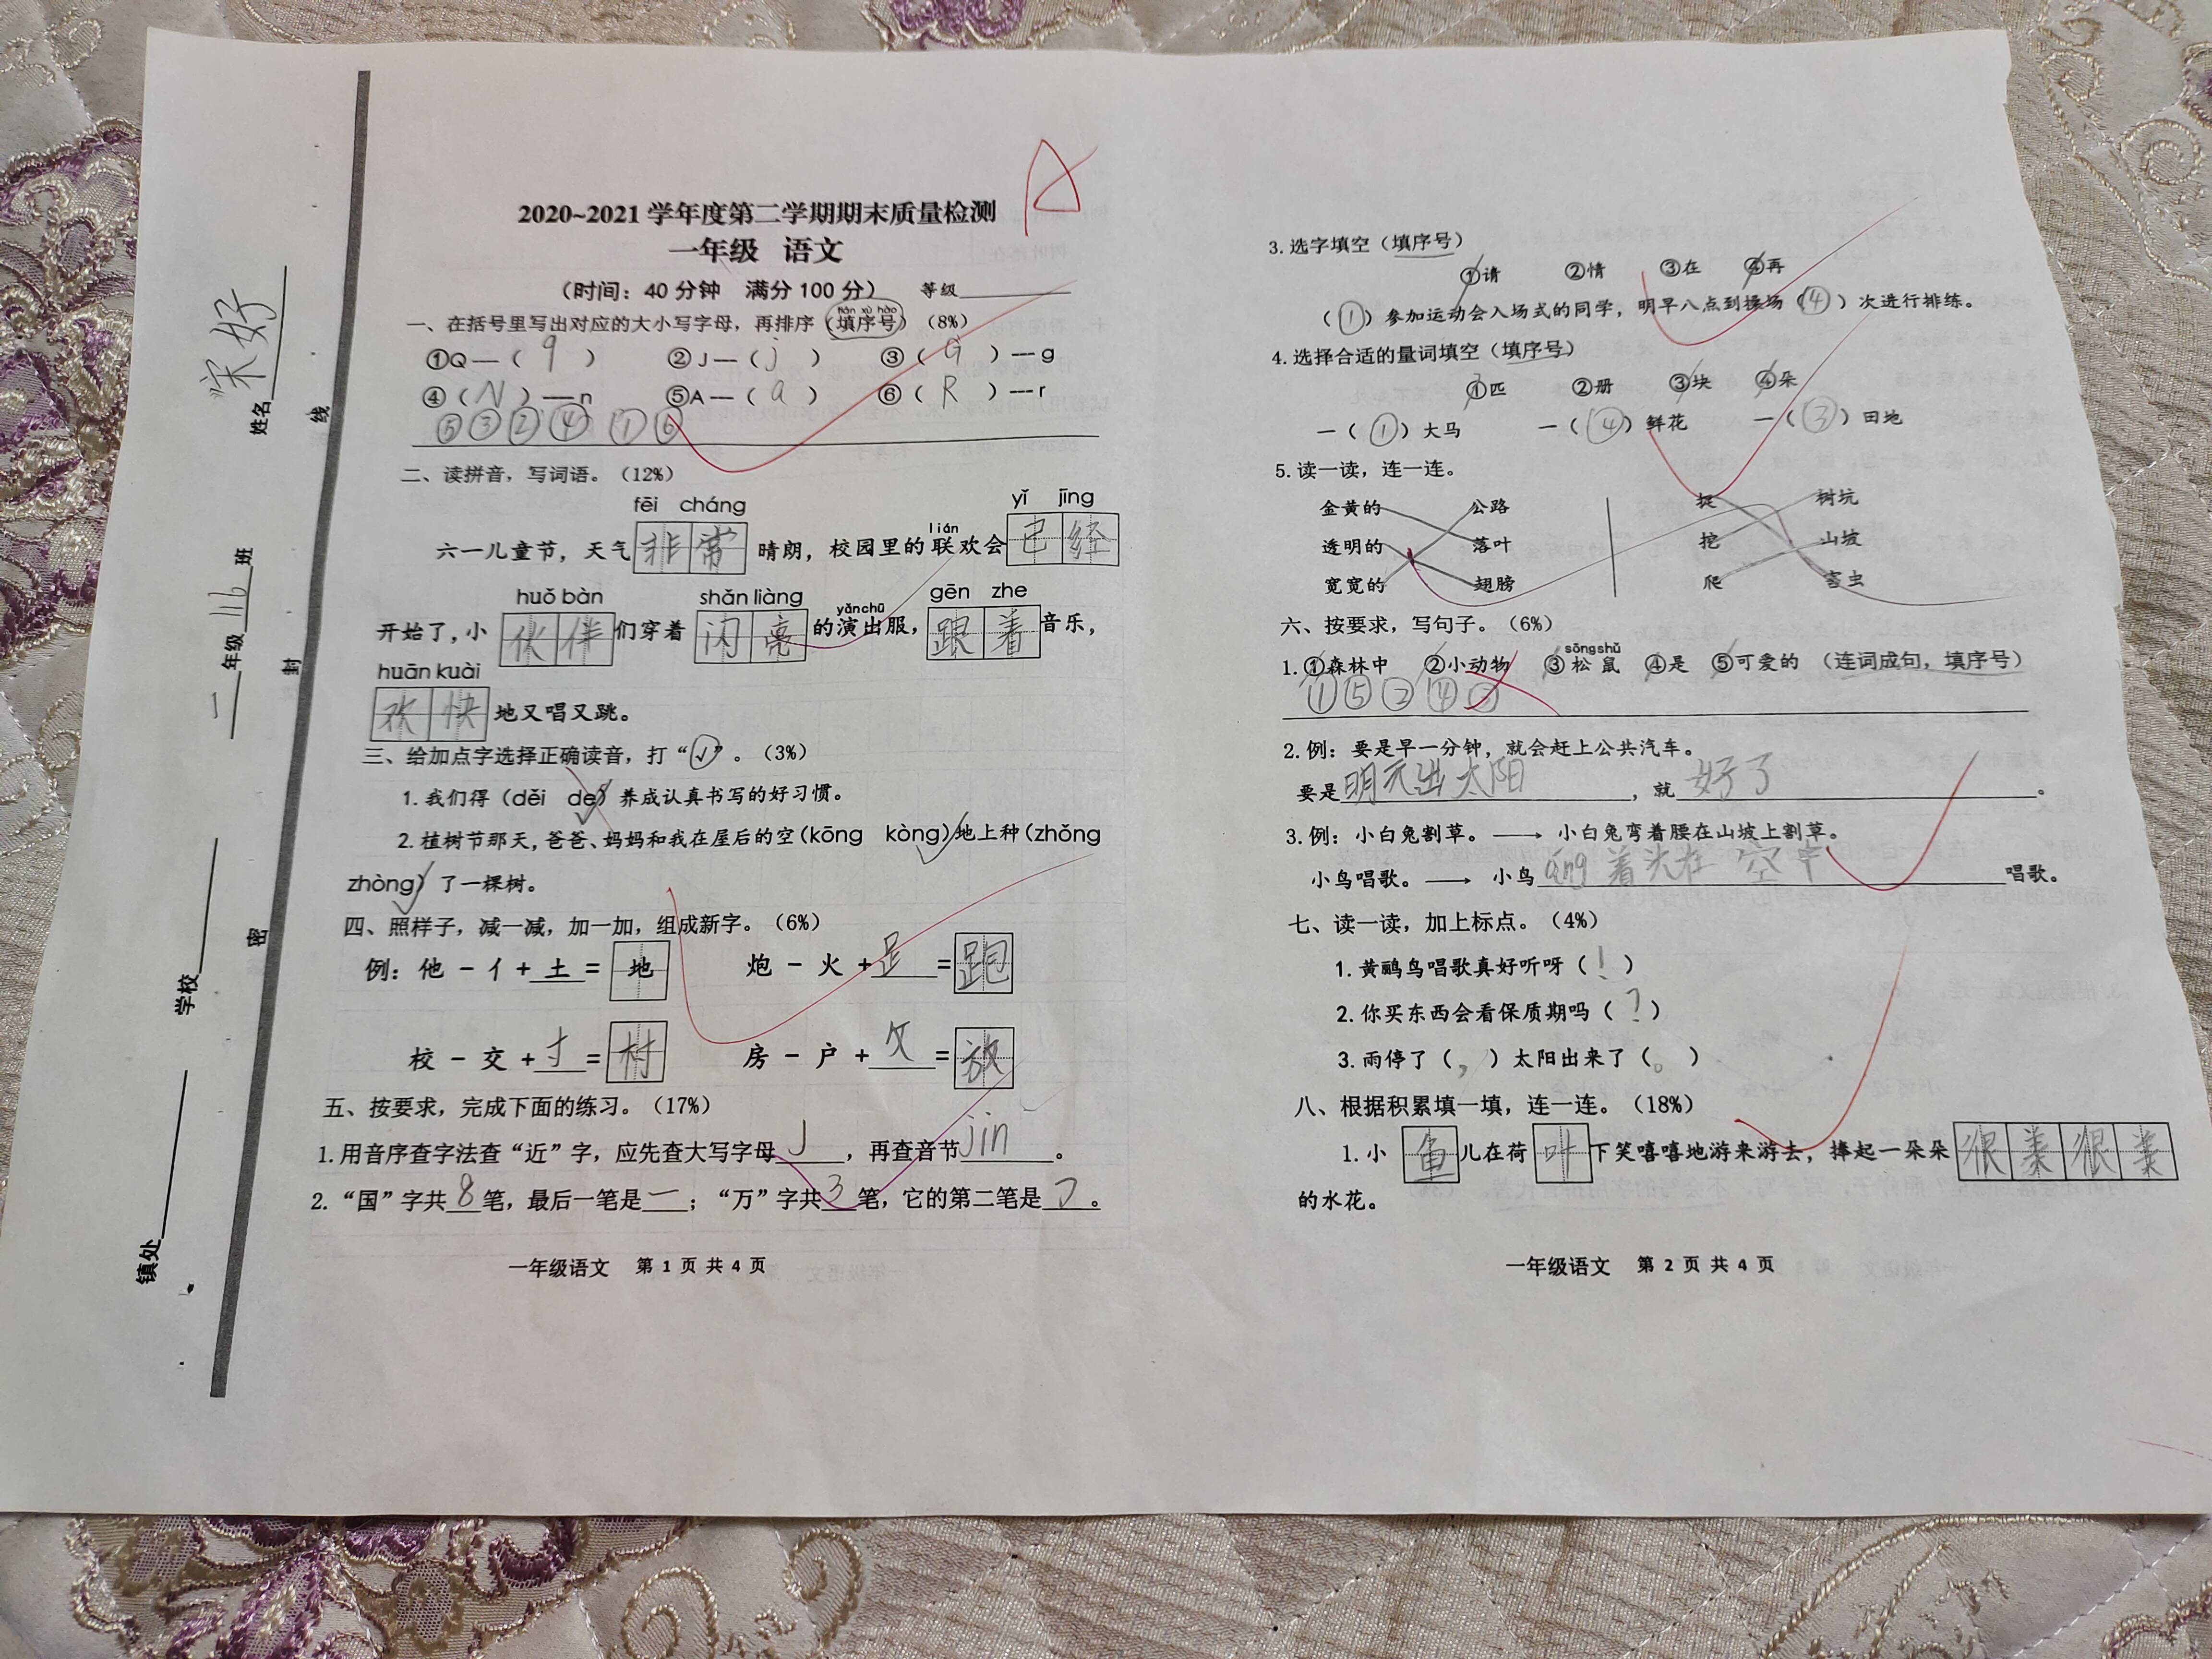 2020~2021 学年度第二学期期末质量检测
一年级 语文
A
（时间：40 分钟 满分 100 分） 等级
一、在括号里写出对应的大小写字母，再排序（填序号）（8%）
tián xù hào
①Q—（ q ） ②J—（ j ） ③（ G ）—g
④（ N ）—n ⑤A—（ a ） ⑥（ R ）—r
⑤③②④①⑥
二、读拼音，写词语。（12%）
fēi cháng yǐ jīng
六一儿童节，天气 非常 晴朗，校园里的联欢会 已经
lián
huǒ bàn shǎn liàng yǎn chū gēn zhe
开始了，小 伙伴 们穿着 闪亮 的演出服， 跟着 音乐，
huān kuài
欢快 地又唱又跳。
三、给加点字选择正确读音，打“√”。（3%）
1. 我们得（děi de）养成认真书写的好习惯。
2. 植树节那天，爸爸、妈妈和我在屋后的空（kōng kòng）地上种（zhǒng
zhòng）了一棵树。
四、照样子，减一减，加一加，组成新字。（6%）
例：他 － 亻 ＋ 土 ＝ 地 炮 － 火 ＋ 𧾷 ＝ 跑
校 － 交 ＋ 寸 ＝ 村 房 － 户 ＋ 攵 ＝ 放
五、按要求，完成下面的练习。（17%）
1. 用音序查字法查“近”字，应先查大写字母 J ，再查音节 jin 。
2. “国”字共 8 笔，最后一笔是 一 ；“万”字共 3 笔，它的第二笔是 ㇆ 。
一年级语文 第 1 页 共 4 页
姓名 宋好
二 年级 116 班
学校
镇处
密 封 线
3. 选字填空（填序号）
①请 ②情 ③在 ④再
（ ① ）参加运动会入场式的同学，明早八点到操场（ ④ ）次进行排练。
4. 选择合适的量词填空（填序号）
①匹 ②册 ③块 ④朵
一（ ① ）大马 一（ ④ ）鲜花 一（ ③ ）田地
5. 读一读，连一连。
金黄的 公路 捉 树坑
透明的 落叶 挖 山坡
宽宽的 翅膀 爬 害虫
六、按要求，写句子。（6%）
sōng shǔ
1. ①森林中 ②小动物 ③松鼠 ④是 ⑤可爱的 （连词成句，填序号）
①⑤②④③
2. 例：要是早一分钟，就会赶上公共汽车。
要是 明天出太阳 ，就 好了 。
3. 例：小白兔割草。——→ 小白兔弯着腰在山坡上割草。
小鸟唱歌。——→ 小鸟 着头在空中 唱歌。
七、读一读，加上标点。（4%）
1. 黄鹂鸟唱歌真好听呀（ ！ ）
2. 你买东西会看保质期吗（ ？ ）
3. 雨停了（ ， ）太阳出来了（ 。 ）
八、根据积累填一填，连一连。（18%）
1. 小 鱼 儿在荷 叶 下笑嘻嘻地游来游去，捧起一朵朵 很美很美
的水花。
一年级语文 第 2 页 共 4 页